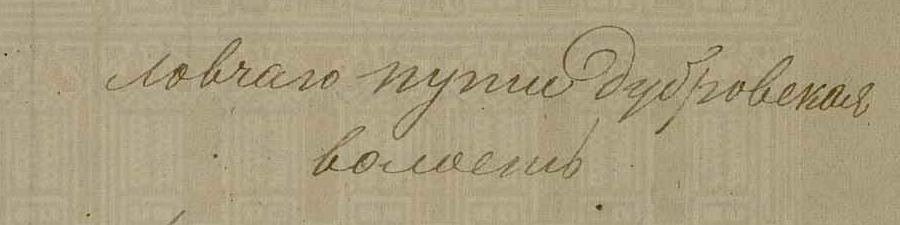 ловчаго пути Дубровская
волость